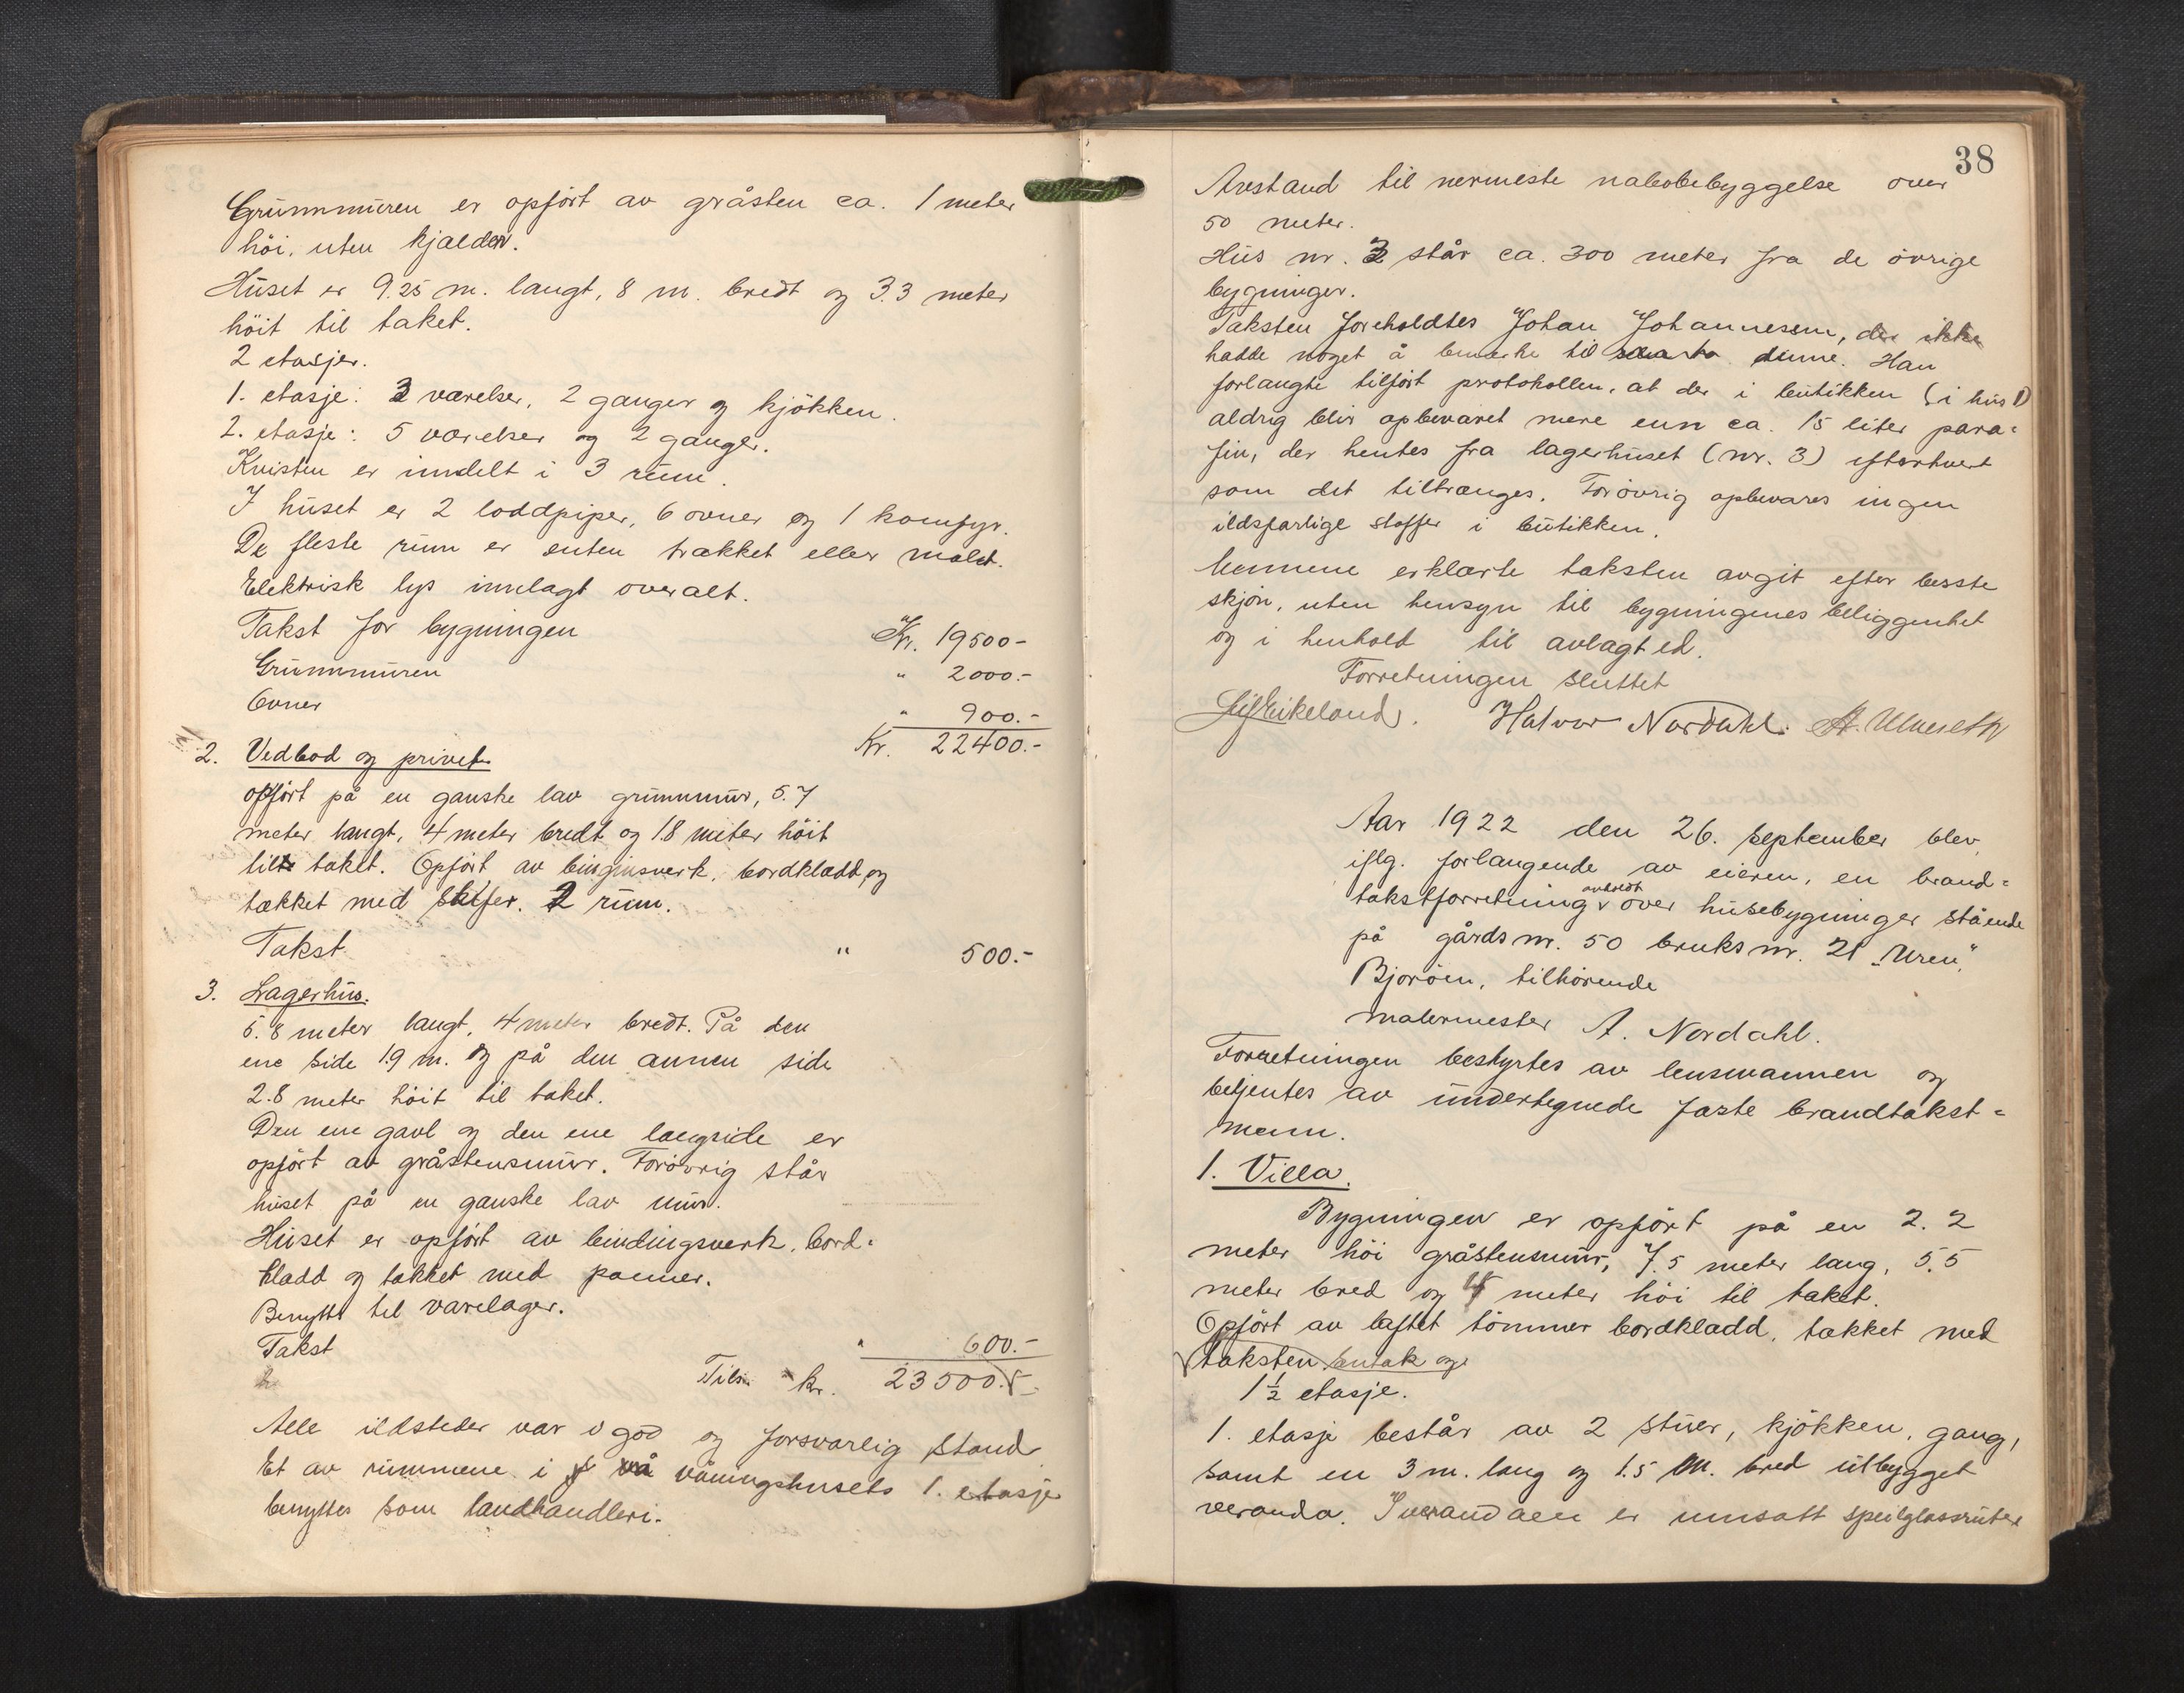 Grunnmuren er opført av gråsten ca. 1 meter
høi, uten kjælder.
Huset er 9.25 m. langt, 8 m. bredt og 3.3 meter
høit til taket.
2 etasjer.
1. etasje: 3 værelser, 2 ganger og kjøkken.
2. etasje: 5 værelser og 2 ganger.
Kvisten er inndelt i 3 rum.
I huset er 2 loddpiper, 6 ovner og 1 komfyr.
De fleste rum er enten trækket eller malet.
Elektrisk lys innlagt overalt.
Takst for bygningen Kr. 19500-
Grunnmuren " 2000.-
Ovner " 900.-
Kr. 22400.-
2. Vedbod og privet
opført på en ganske lav grunnmur, 5.7
meter langt, 4 meter bredt og 1.8 meter høit
til taket. Opført av bingingsverk, bordklædd og
tækket med skifer. 2 rum.
Takst " 500.-
3. Lagerhus.
5.8 meter langt, 4 meter bredt. På den
ene side 1.9 m. og på den annen side
2.8 meter høit til taket.
Den ene gavl og den ene langside er
opført av gråstensmur. Forøvrig står
huset på en ganske lav mur.
Huset er opført av bindingsverk, bord-
klædd og tækket med panner.
Benyttt til varelager.
Takst " 600.-
Tils. Kr. 23500.-
Alle ildsteder var i god og forsvarlig stand.
Et av rummene i våningshusets 1. etasje
benyttes som landhandleri.
38
Avstand til nermeste nabobebyggelse over
50 meter.
Hus nr. 3 står ca. 300 meter fra de øvrige
bygninger.
Taksten foreholdtes Johan Johannessen, der ikke
hadde noget å bemerke til denne. Han
forlangte tilført protokollen, at der i butikken (i hus 1)
aldrig blir opbevaret mere enn ca. 15 liter para-
fin, der hentes fra lagerhuset (nr. 3) efterhvert
som det tiltrænges. Forøvrig opbevares ingen
ildsfarlige stoffer i butikken.
Mennene erklærte taksten avgit efter besste
skjøn, uten hensyn til bygningenes beliggenhet
og i henhold til avlagt ed.
Forretningen sluttet
Leif Eikeland. Halvor Nordahl.
Aar 1922 den 26. september blev,
iflg. forlangende av eieren, en brand-
takstforretning avholdt over husebygninger stående
på gårds nr. 50 bruks nr. 21 „Uren",
Bjorøen, tilhørende
malermester A. Nordahl.
Forretningen bestyrtes av lensmannen og
betjentes av undertegnede faste brandtakst-
menn.
1. Villa.
Bygningen er opført på en 2.2
meter høi gråstensmur, 7.5 meter lang, 5.5
meter bred og 4 meter høi til taket.
Opført av laftet tømmer bordklædd, tækket med
taksten.
1½ etasje.
1. etasje består av 2 stuer, kjøkken, gang,
samt en 3 m. lang og 1.5 m. bred utbygget
veranda. I verandaen er innsatt speilglassruter